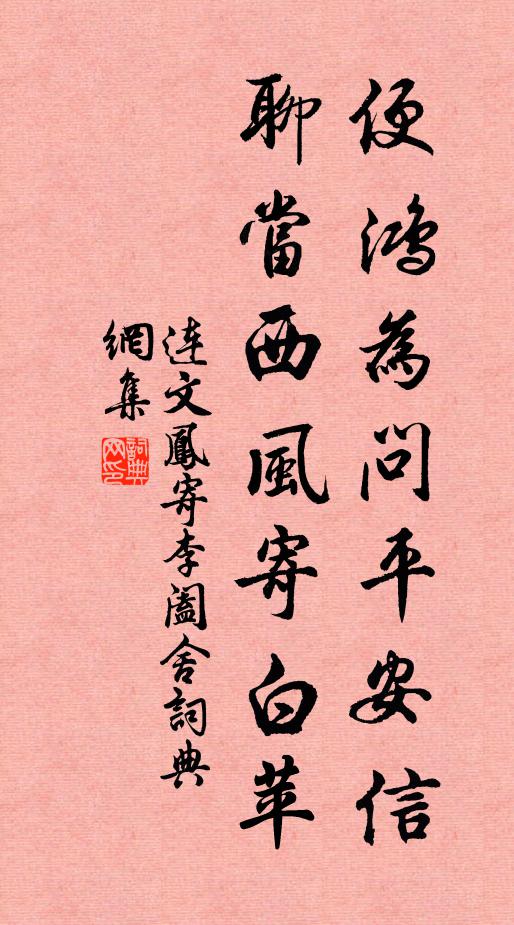 便鴻為問平安信
聊當西風寄白苹
連文鳳寄李闔舍詞典
網集
詞典網印